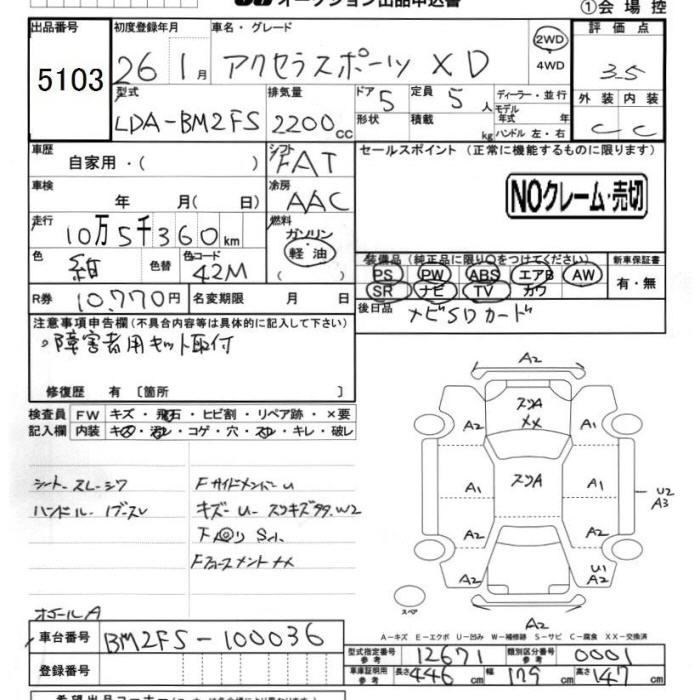 オークション出品申込書
①会場控
出品番号 初度登録年月 車名・グレード 2WD 4WD 評価点
5103 26 1月 アクセラスポーツ XD 3.5
型式 排気量 ドア 5 定員 5人 ディーラー・並行 外装 内装
LDA-BM2FS 2200cc 形状 積載 kg モデル年式 年 ハンドル 左・右 C C
車歴 自家用・( ) シフト FAT セールスポイント (正常に機能するものに限ります)
車検 年 月( 日) 冷房 AAC NOクレーム・売切
走行 10万5千360km 燃料 ガソリン 軽油 ( )
色 紺 色替 色コード 42M
装備品 (純正品に限り○をつけてください) 新車保証書
PS PW ABS エアB AW 有・無
SR ナビ TV カワ
R券 10,770円 名変期限 月 日 後日品 ナビSDカード
注意事項申告欄(不具合内容等は具体的に記入して下さい)
。障害者用キット取付
修復歴 有 〔箇所 〕
検査員 FW キズ・飛石・ヒビ割・リペア跡・×要
記入欄 内装 キズ・汚レ・コゲ・穴・スレ・キレ・破レ
シート スレ・シワ
ハンドル
Fサイドメンバー U
キズ
A2
スリA
XX
A2 A2
A1
A1 スリA A1
U2
A3
A2 A2
A2 U1
A2
スペア
A2
A-キズ E-エクボ U-凹み W-補修跡 S-サビ C-腐食 XX-交換済
車台番号 BM2FS-100036
型式指定番号 参考 12671 類別区分番号 参考 0001
登録番号
車庫証明用 参考 長さ 446 cm 幅 179 cm 高さ 147 cm
希望出品コーナー